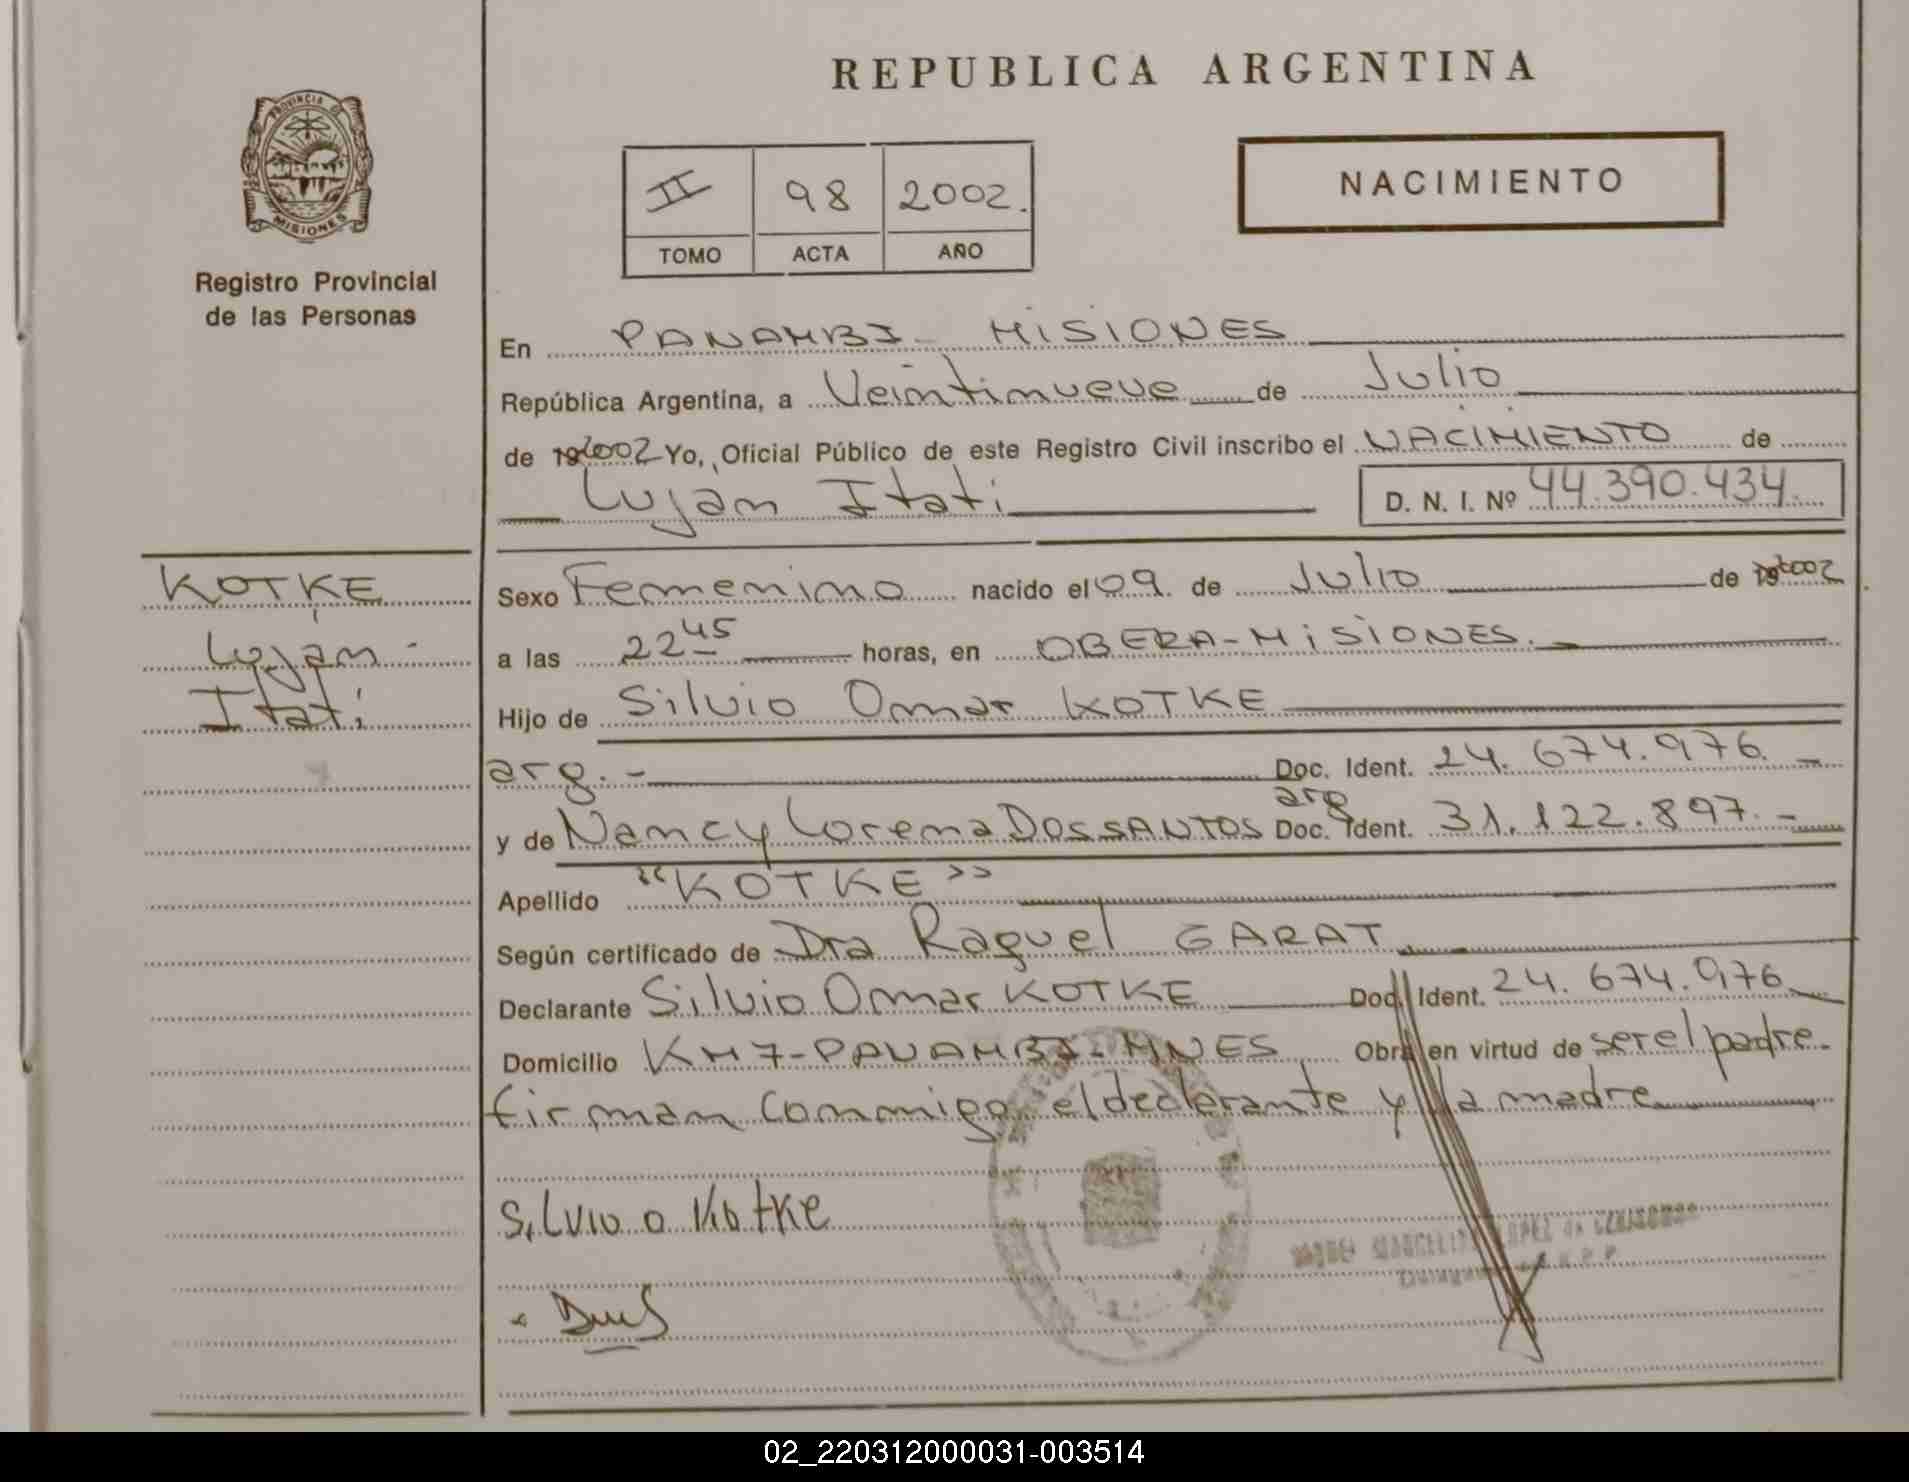 REPUBLICA ARGENTINA
PROVINCIA DE
MISIONES
Registro Provincial
de las Personas
II 98 2002.
TOMO ACTA AÑO
NACIMIENTO
En PANAMBI - MISIONES
República Argentina, a Veintinueve de Julio
de 192002 Yo, Oficial Público de este Registro Civil inscribo el NACIMIENTO de
Luján Itatí D. N. I. Nº 44.390.434.
KOTKE
Luján
Itatí
Sexo Femenino nacido el 09. de Julio de 192002
a las 22 45 horas, en OBERA-MISIONES.
Hijo de Silvio Omar KOTKE
arg. - Doc. Ident. 24.674.976. -
arg
y de Nancy Lorena DOSSANTOS Doc. Ident. 31.122.897. -
Apellido "KOTKE"
Según certificado de Dra Raquel GARAT.
Declarante Silvio Omar KOTKE Doc. Ident. 24.674.976
Domicilio KM 7-PANAMBI-MNES Obra en virtud de ser el padre.
firman conmigo el declarante y la madre
Silvio o Kotke
02_220312000031-003514